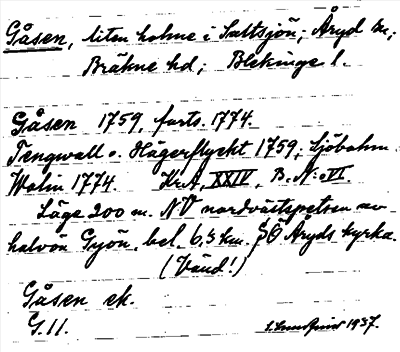 Gåsen, liten holme i Saltsjön; Åryd sn;
Bräkne hd; Blekinge l.
Gåsen 1759, forts. 1774.
Tengwall o. Hägerflycht 1759; Sjöbohm
Wolin 1774. KrA, XXIV, B. N:o VI
Läge 200 m. NV nordvästspetsen av
halvön Gyön, bel. 6,3 km. SÖ Åryds kyrka.
(Vänd!)
Gåsen ek.
G. 11. 1937.